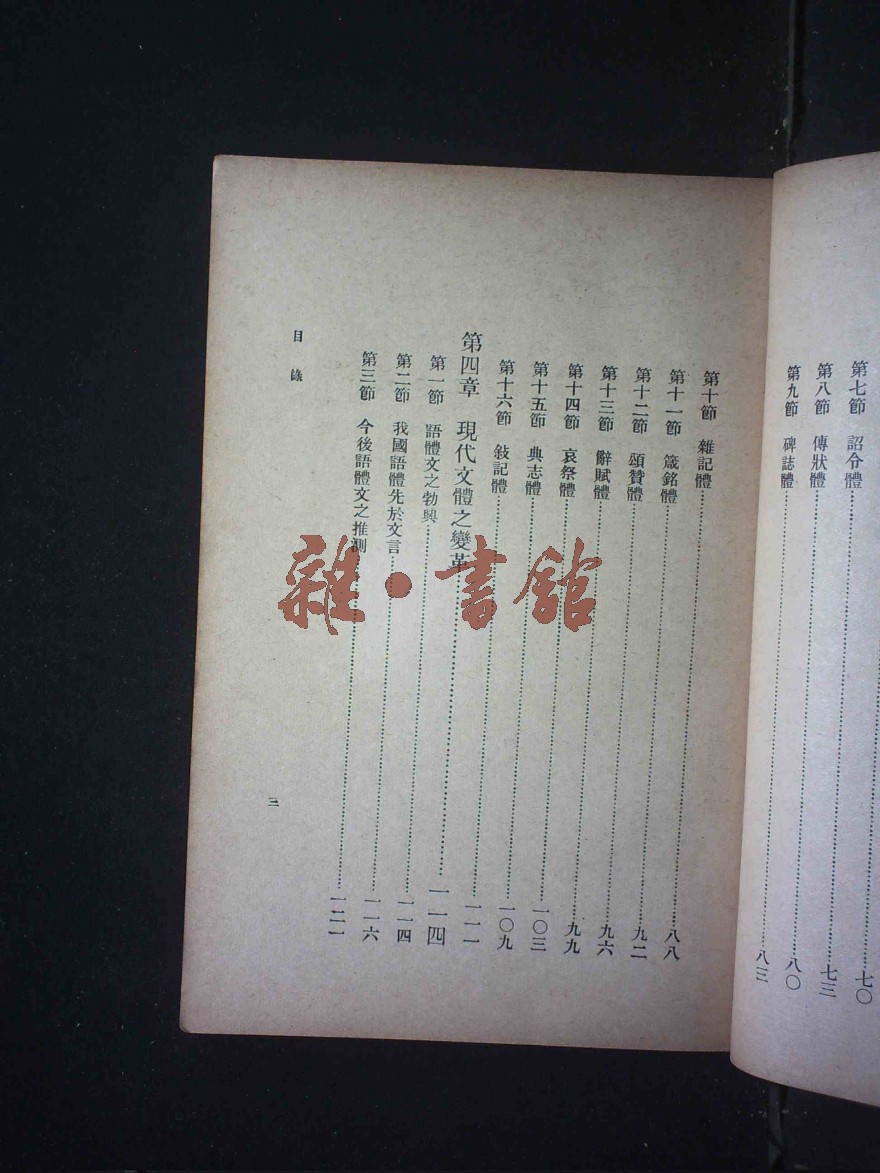 七〇
第七節 詔令體……七三
第八節 傳狀體……八〇
第九節 碑誌體……八三
第十節 雜記體……八八
第十一節 箴銘體……九二
第十二節 頌贊體……九六
第十三節 辭賦體……九九
第十四節 哀祭體……一〇三
第十五節 典志體……一〇九
第十六節 敍記體……一一一
第四章 現代文體之變革……一一四
第一節 語體文之勃興……一一四
第二節 我國語體先於文言……一一六
第三節 今後語體文之推測……一二一
目錄
三
雜·書館